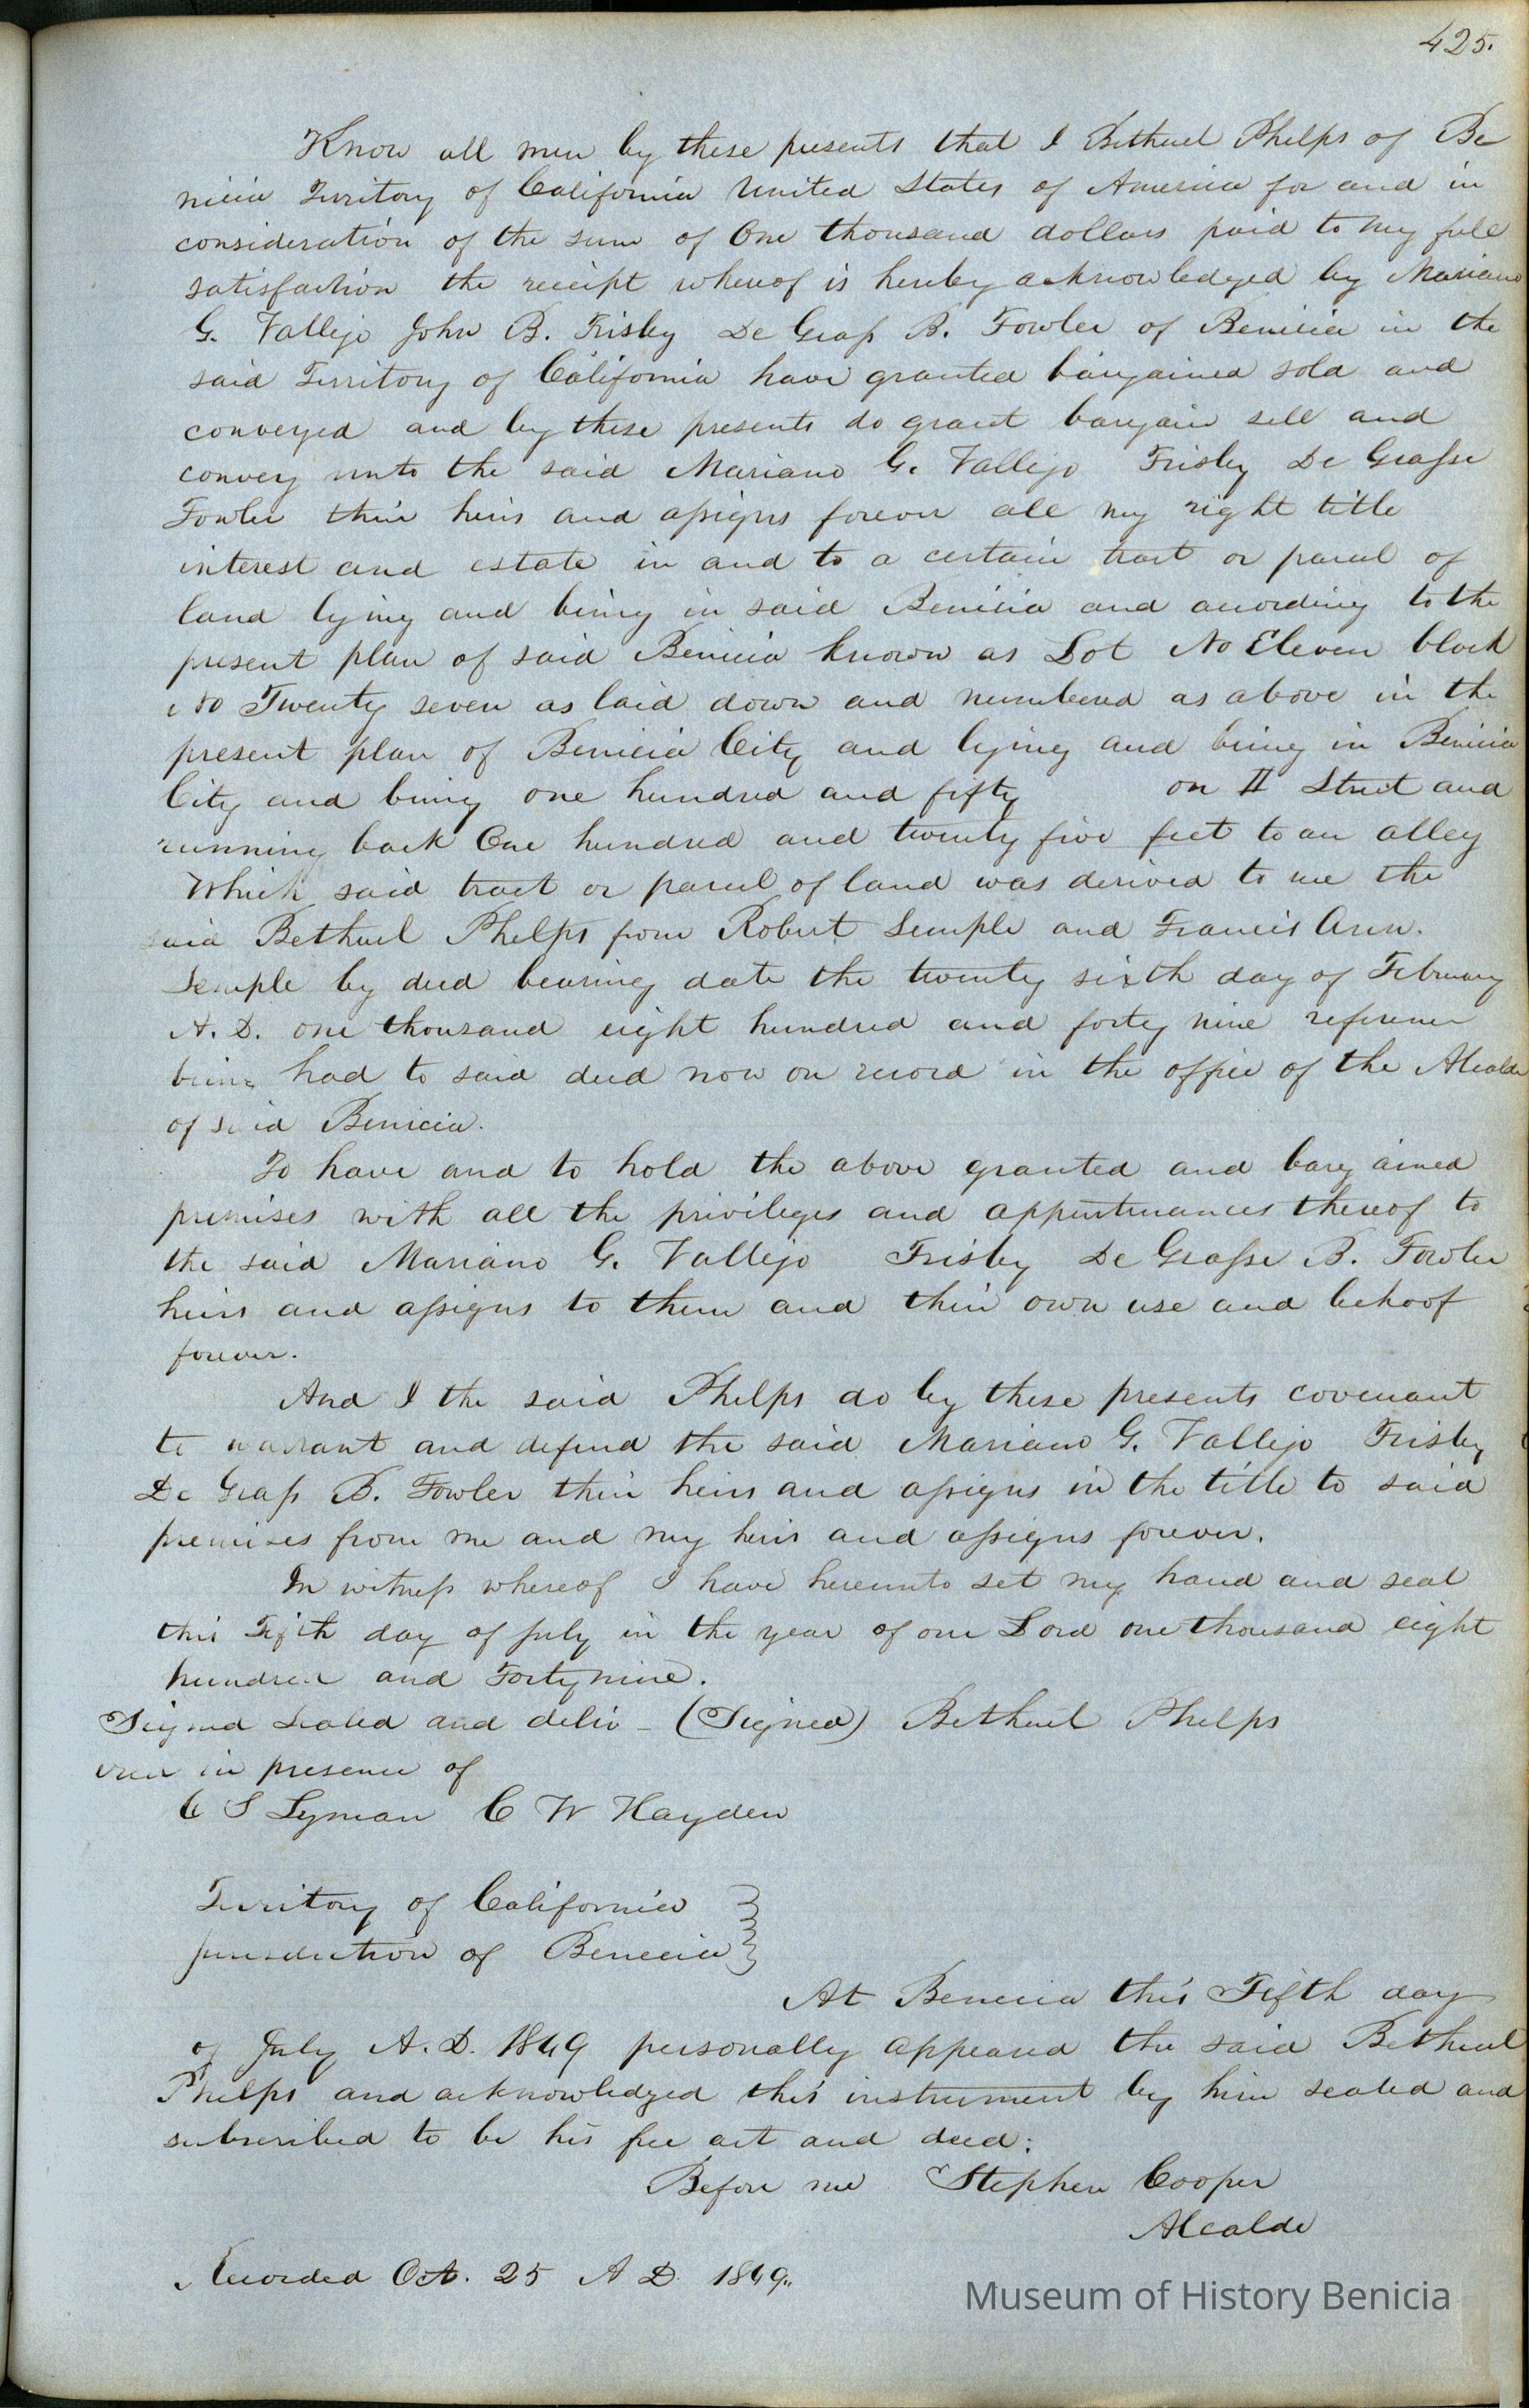 425.
Know all men by these presents that I Bethuel Phelps of Be
nicia Territory of California United States of America for and in
consideration of the sum of One thousand dollars paid to my full
satisfaction the receipt whereof is hereby acknowledged by Mariano
G. Vallejo John B. Frisby De Grass B. Fowler of Benicia in the
said Territory of California have granted bargained sold and
conveyed and by these presents do grant bargain sell and
convey unto the said Mariano G. Vallejo Frisby De Grasse
Fowler their heirs and assigns forever all my right title
interest and estate in and to a certain tract or parcel of
land lying and being in said Benicia and according to the
present plan of said Benicia known as Lot No Eleven block
No Twenty seven as laid down and numbered as above in the
present plan of Benicia City and lying and being in Benicia
City and being one hundred and fifty on H Street and
running back One hundred and twenty five feet to an alley
Which said tract or parcel of land was derived to me the
said Bethuel Phelps from Robert Semple and Francis Ann.
Semple by deed bearing date the twenty sixth day of February
A. D. one thousand eight hundred and forty nine reference
being had to said deed now on record in the office of the Alcalde
of said Benicia.
To have and to hold the above granted and bargained
premises with all the privileges and appurtenances thereof to
the said Mariano G. Vallejo Frisby De Grasse B. Fowler
heirs and assigns to them and their own use and behoof
forever.
And I the said Phelps do by these presents covenant
to warrant and defend the said Mariano G. Vallejo Frisby
De Grass B. Fowler their heirs and assigns in the title to said
premises from me and my heirs and assigns forever.
In witness whereof I have hereunto set my hand and seal
this Fifth day of July in the year of our Lord one thousand eight
hundred and Forty nine.
Signed Sealed and deliv - (Signed) Bethuel Phelps
ered in presence of
C S Lyman C W Hayden
Territory of California
jurisdiction of Benecia
At Benecia this Fifth day
of July A. D. 1849 personally appeared the said Bethuel
Phelps and acknowledged this instrument by him sealed and
subscribed to be his free act and deed:
Before me Stephen Cooper
Alcalde
Recorded Oct. 25 A D. 1849.
Museum of History Benicia